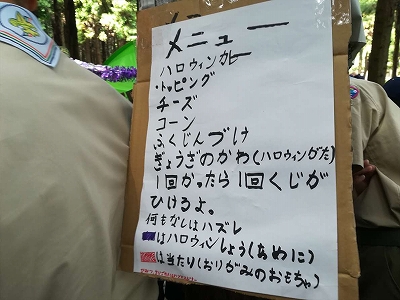 メニュー
ハロウィンカレー
・トッピング
チーズ
コーン
ふくじんづけ
ぎょうざのかわ(ハロウィンがた)
1回かったら1回くじが
ひけるよ。
何もなしはハズレ
はハロウィンしょう(あめに)
は当たり(おりがみのおもちゃ)